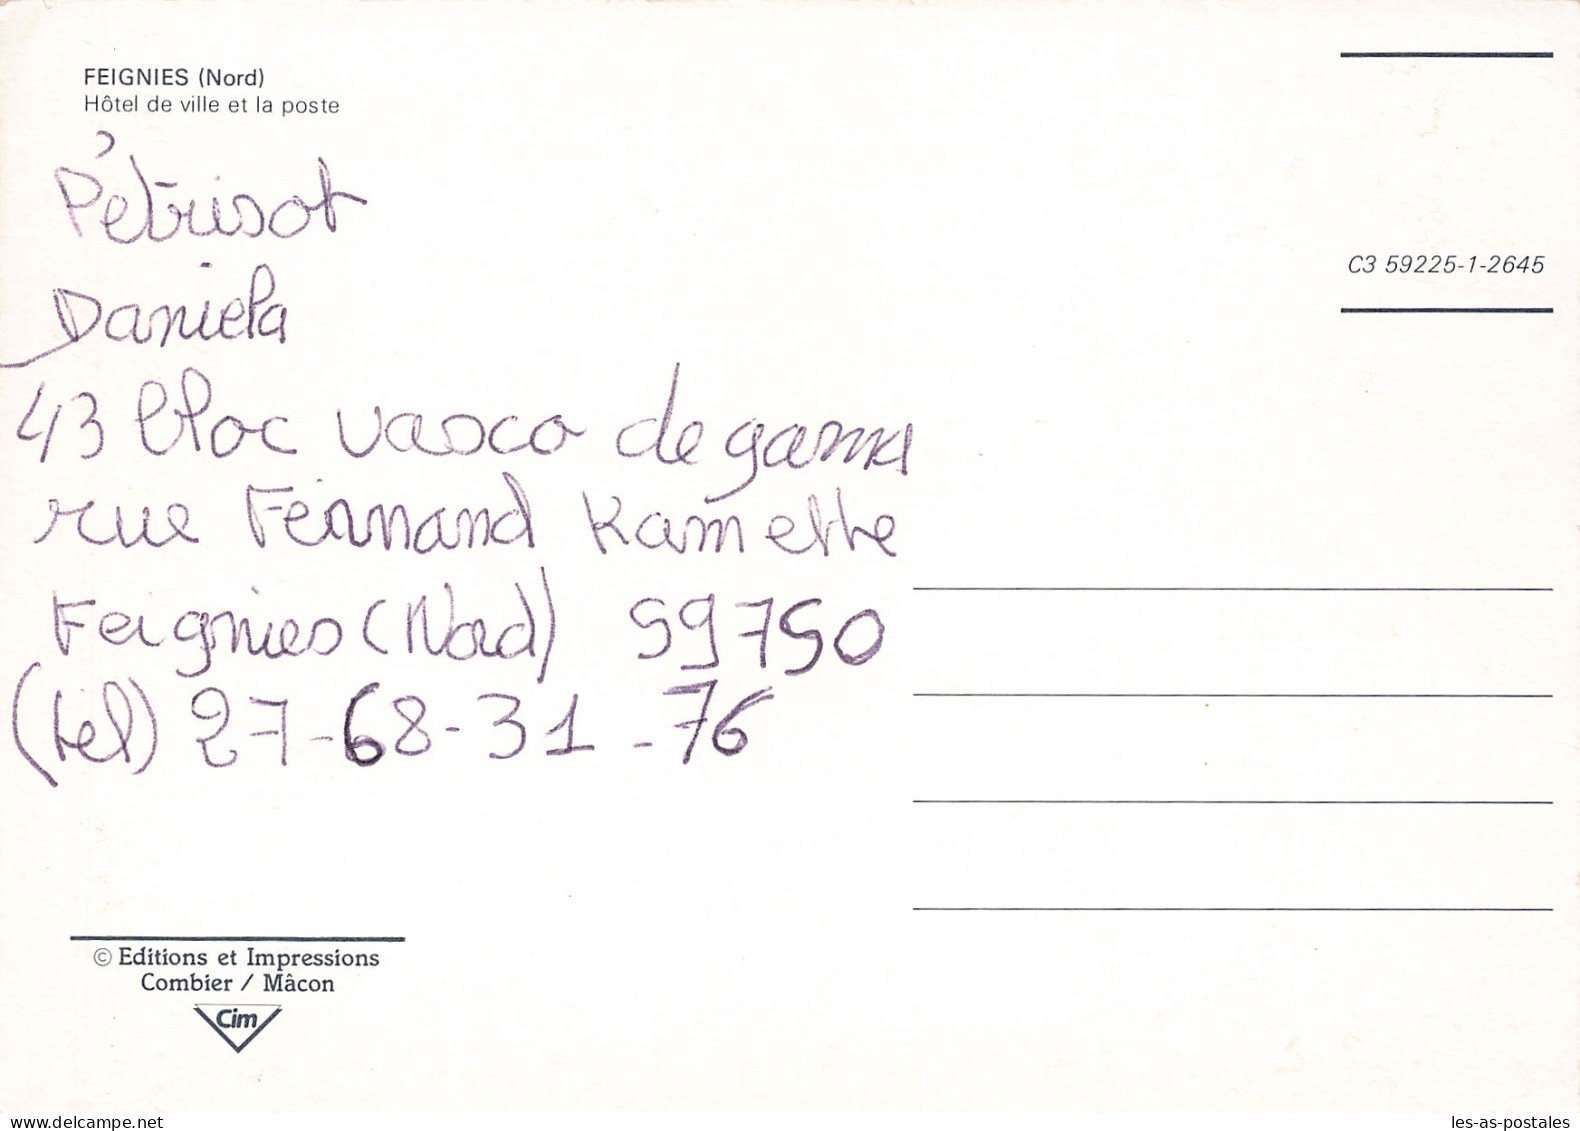 FEIGNIES (Nord)
Hôtel de ville et la poste
C3 59225-1-2645
Pétrisot
Daniela
43 bloc vasco de gama
rue Fernand Kamette
Feignies (Nord) 59750
(tel) 27-68-31-76
© Editions et Impressions
Combier / Mâcon
Cim
www.delcampe.net
les-as-postales